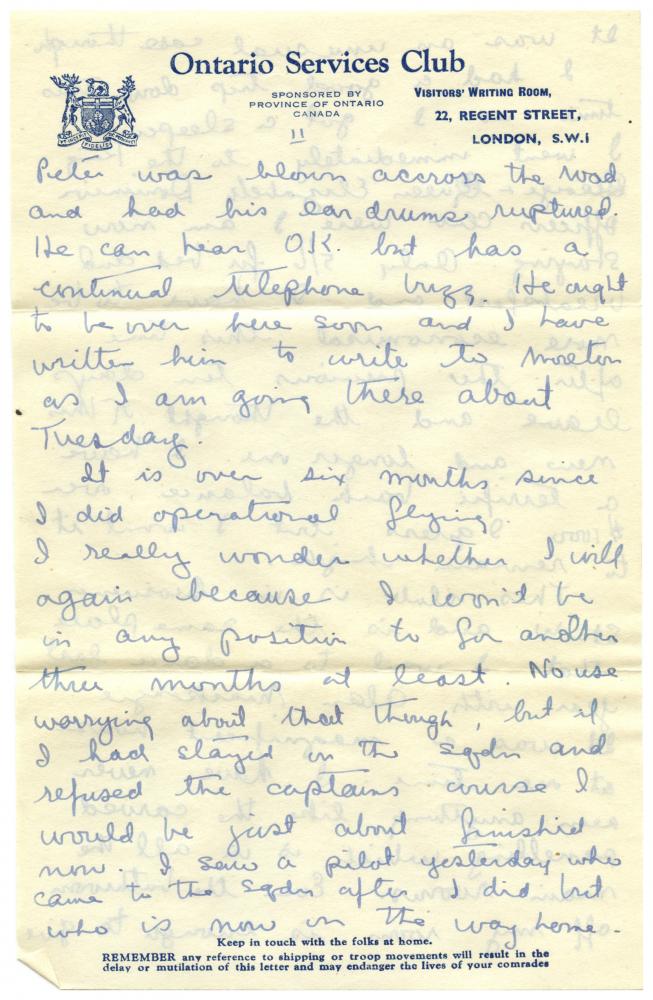 Ontario Services Club
SPONSORED BY
PROVINCE OF ONTARIO
CANADA
VISITORS' WRITING ROOM,
22, REGENT STREET,
LONDON, S.W.1
11
Peter was blown accross the road
and had his ear drums ruptured.
He can hear O.K. but has a
continual telephone buzz. He ought
to be over here soon and I have
written him to write to Moreton
as I am going there about
Tuesday.
It is over six months since
I did operational flying.
I really wonder whether I will
again because I won't be
in any position to for another
three months at least. No use
worrying about that though, but if
I had stayed on the sqdn and
refused the captains course I
would be just about finished
now. I saw a pilot yesterday who
came to the sqdn after I did but
who is now on the way home.
Keep in touch with the folks at home.
REMEMBER any reference to shipping or troop movements will result in the
delay or mutilation of this letter and may endanger the lives of your comrades